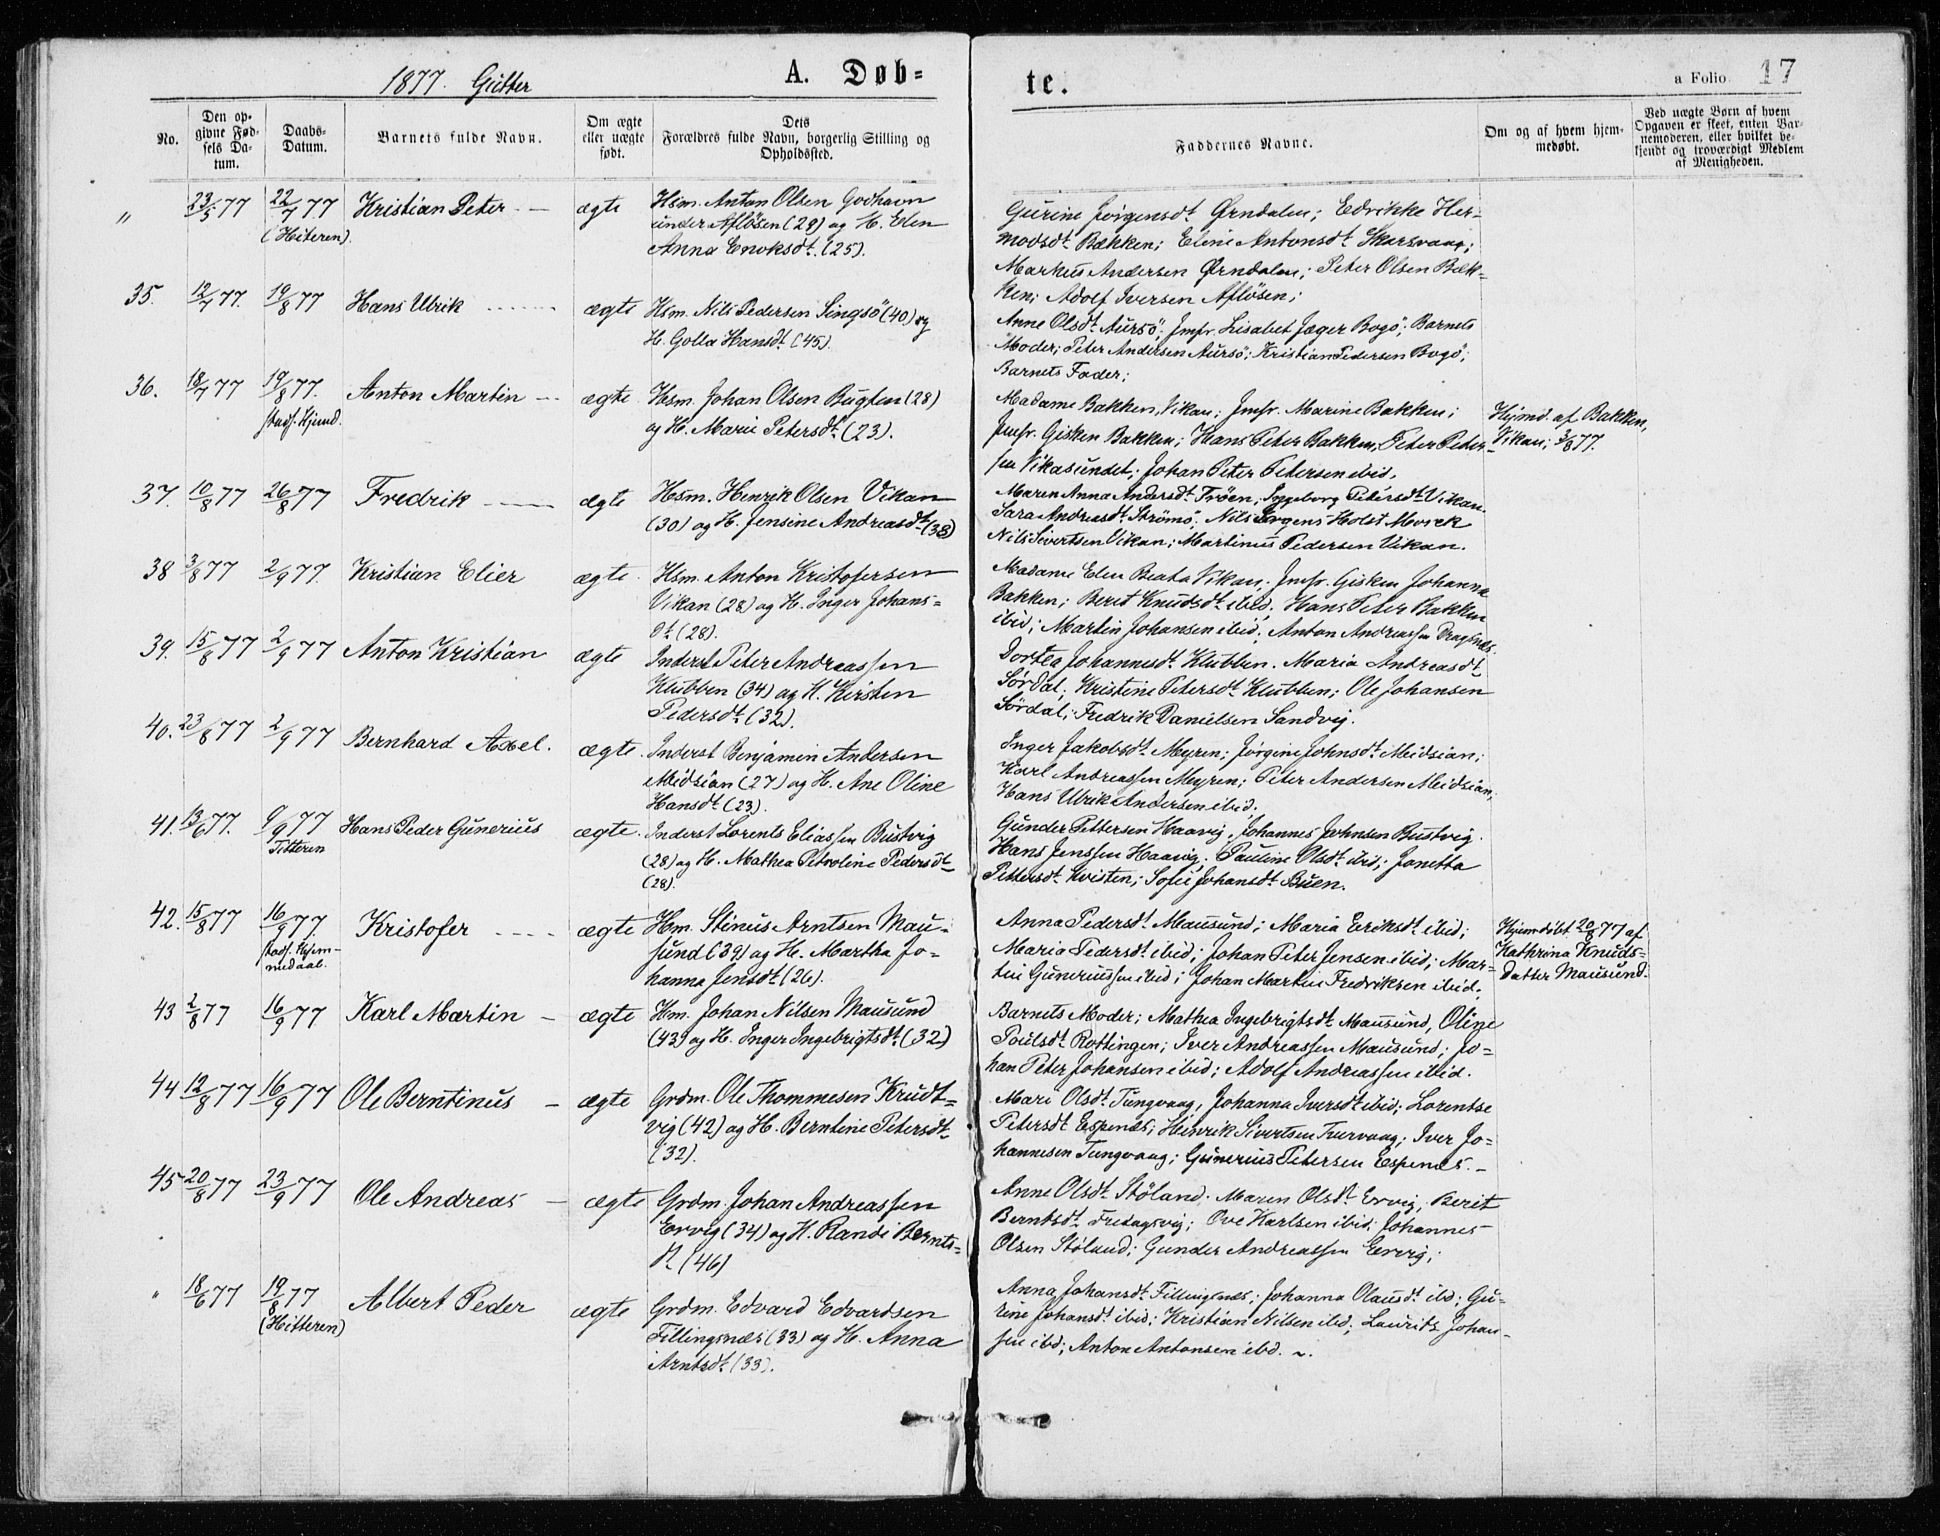 1877. Gutter
A. Døb-
te.
a Folio 17
No.
Den op-
givne Fød-
sels Da-
tum.
Daabs-
Datum.
Barnets fulde Navn.
Om ægte
eller uægte
født.
Dets
Forældres fulde Navn, borgerlig Stilling og
Opholdssted.
Faddernes Navne.
Om og af hvem hjem-
medøbt.
Ved uægte Børn af hvem
Opgaven er skeet, enten Bar-
nemoderen, eller hvilket be-
kjendt og troværdigt Medlem
af Menigheden.
" 23/5 77 22/7 77 Kristian Peter - ægte Hsm. Anton Olsen Godhavn
(Hiteren). under Afløsen (29) og H. Elen
Anna Enoksdt. (25).
Gurine Jørgensdt. Ørndalen; Edrikke Her-
modsdt. Bækken; Eline Antonsdt. Skarsvaag;
Markus Andersen Ørndalen; Peter Olsen Bæk-
ken; Adolf Iversen Afløsen;
35. 12/7 77. 19/8 77 Hans Ulrik ægte Hsm. Nils Pedersen Singsö (40) og
H. Golla Hansdt. (45).
Anne Olsdt. Aursö; Jmfr. Lisabet Jæger Bogö; Barnets
Moder; Peter Andersen Aursö; Kristian Pedersen Bogö;
Barnets Fader;
36. 18/7 77 19/8 77. Anton Martin - ægte Hsm. Johan Olsen Bugten (28)
stadf. Hjemd. og H. Marie Petersdt. (23).
Madame Bakken, Vikan; Jmfr. Marine Bakken;
Jmfr. Gisken Bakken; Hans Peter Bakken, Peter Peter-
sen Vikasundet; Johan Peter Petersen ibid.
Hjmd. af Bakken,
Vikan; 3/8 77.
37. 10/8 77 26/8 77 Fredrik ægte Hsm. Henrik Olsen Vikan
(30) og H. Jensine Andreasdt. (38)
Maren Anna Andersdt. Trøen; Ingeborg Petersdt. Vikan.
Sara Andreasdt. Strömö; Nils Jørgens Holst Morck
Nils Sivertsen Vikan; Martinus Pedersen Vikan.
38 3/8 77 2/9 77. Kristian Elier ægte. Hsm. Anton Kristofersen
Vikan (28) og H. Inger Johans=
dt. (28).
Madame Elen Beata Vikan; Jmfr. Gisken Johanna
Bakken; Berit Knudsdt. ibid. Hans Peter Bakken
ibid; Martin Johansen ibid; Anton Andreassen Dragsnes.
39. 15/8 77 2/9 77 Anton Kristian ægte Inderst Peter Andreassen
Klubben (34) og H. Kirsten
Pedersdt. (32).
Dortea Johannesdt. Klubben. Maria Andreasdt.
Sördal; Kristine Petersdt. Klubben; Ole Johansen
Sördal; Fredrik Danielsen Sandvig.
40. 23/8 77 2/9 77 Bernhard Axel. ægte. Inderst Benjamin Andersen
Midsian (27) og H. Ane Oline
Hansdt. (23).
Inger Jakobsdt. Myren; Jørgine Johnsdt. Meidsian;
Karl Andreassen Myren; Peter Andersen Meidsian;
Hans Ulrik Andersen ibid.
41. 13/6 77. 9/9 77 Hans Peder Gunerius ægte. Inderst Lorents Eliassen Bustvig
Titteren (28) og H. Mathea Petroline Pedersdt.
(28).
Gunder Pettersen Haavig, Johannes Johnsen Bustvig.
Hans Jenssen Haavig; Pauline Olsdt. ibid; Jonetta
Pettersdt. Kvisten; Sofie Johansdt. Buen.
42. 15/8 77 16/9 77. Kristofer ægte Hm. Stinus Arntsen Mau-
stadf. Hjem- sund (39) og H. Martha Jo-
medaab. hanna Jensdt. (26).
Anna Pedersdt. Mausund; Maria Eriksdt. ibid;
Maria Pedersdt. ibid; Johan Peter Jensen ibid; Mar-
tin Guneriussen ibid; Johan Martin Fredriksen ibid;
Hjemdöbt 20/8 77 af
Kathrina Knuds-
datter Mausund.
43 2/8 77 16/9 77 Karl Martin - ægte Hm. Johan Nilsen Mausund
(43) og H. Inger Ingebrigtsdt. (32)
Barnets Moder; Mathea Ingebrigtsdt. Mausund, Oline
Poulsdt. Rottingen; Iver Andreassen Mausund; Jo-
han Peter Johansen ibid; Adolf Andreassen ibid.
44 12/8 77 16/9 77 Ole Berntinus - ægte Grdm. Ole Thommesen Krudt-
vig (42) og H. Berntine Petersdt.
(32).
Mari Olsdt. Tungvaag, Johanna Iversdt. ibid; Lorentse
Petersdt. Espenes; Hinrik Sivertsen Tvervaag; Iver Jo-
hannesen Tungvaag; Gunerius Petersen Espenes. -
45 20/8 77 23/9 77 Ole Andreas - ægte Grdm. Johan Andreassen
Ervig (34) og H. Randi Bernts-
dt. (46)
Anne Olsdt. Stöland. Maren Olsdt. Ervig; Berit
Berntsdt. Fredagsvig; Ove Karlsen ibid; Johannes
Olsen Stöland; Gunder Andreassen Ervig;
" 18/6 77 19/8 77 Albert Peder ægte Grdm. Edvard Edvardsen
(Hitteren) Fillingsnæs (33) og H. Anna
Arntsdt. (33).
Anna Johansdt. Fillingsnæs; Johanna Olausdt. ibd; Gu-
rine Johansdt. ibid; Kristian Nilsen ibd; Laurits Johan-
sen ibd; Anton Antonsen ibd.